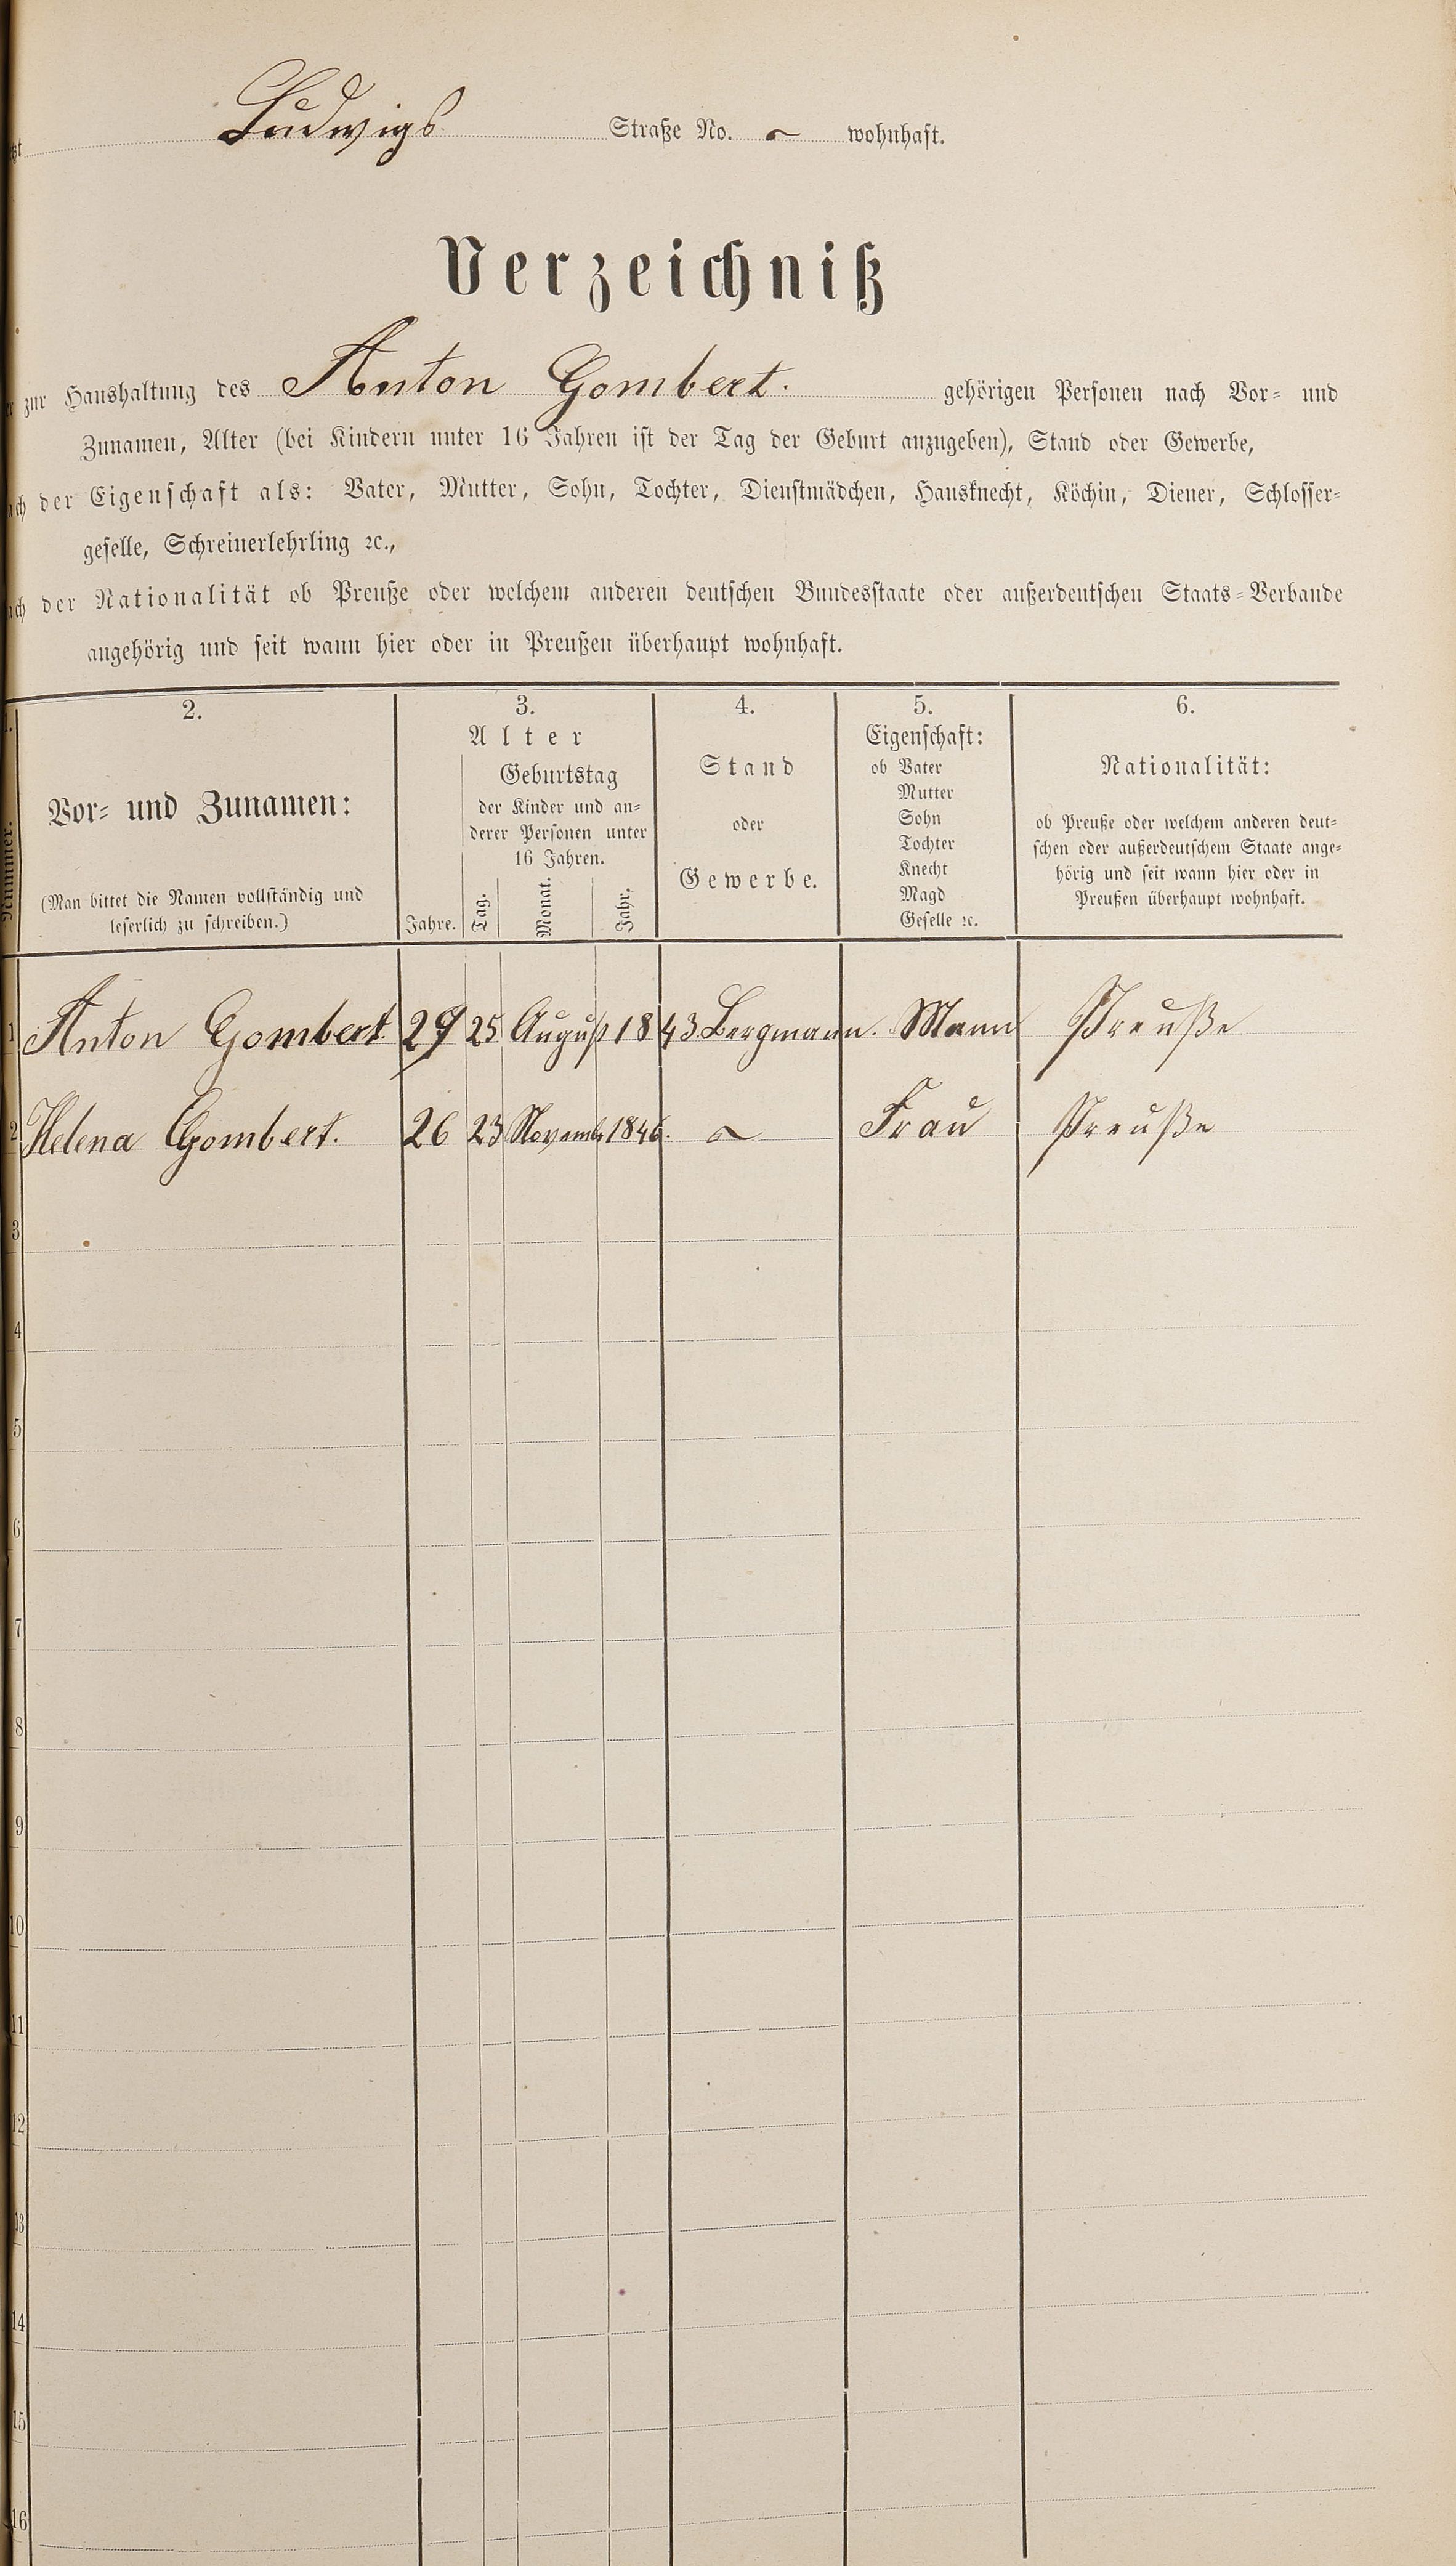 Ludwigs Straße No. wohnhaft.
Verzeichniß
zur Haushaltung des Anton Gombert. gehörigen Personen nach Vor- und
Zunamen, Alter (bei Kindern unter 16 Jahren ist der Tag der Geburt anzugeben), Stand oder Gewerbe,
der Eigenschaft als: Vater, Mutter, Sohn, Tochter, Dienstmädchen, Hausknecht, Köchin, Diener, Schlosser-
geselle, Schreinerlehrling ꝛc.,
der Nationalität ob Preuße oder welchem anderen deutschen Bundesstaate oder außerdeutschen Staats-Verbande
angehörig und seit wann hier oder in Preußen überhaupt wohnhaft.
Nummer.
2.
Vor- und Zunamen:
(Man bittet die Namen vollständig und
leserlich zu schreiben.)
3.
Alter
Geburtstag
der Kinder und an-
derer Personen unter
16 Jahren.
Jahre. Tag. Monat. Jahr.
4.
Stand
oder
Gewerbe.
5.
Eigenschaft:
ob Vater
Mutter
Sohn
Tochter
Knecht
Magd
Geselle ꝛc.
6.
Nationalität:
ob Preuße oder welchem anderen deut-
schen oder außerdeutschem Staate ange-
hörig und seit wann hier oder in
Preußen überhaupt wohnhaft.
1 Anton Gombert. 29 25 August 1843 Bergmann. Mann Preuße
2 Helena Gombert. 26 23 Novemb. 1846. Frau Preuße
3
4
5
6
7
8
9
10
11
12
13
14
15
16